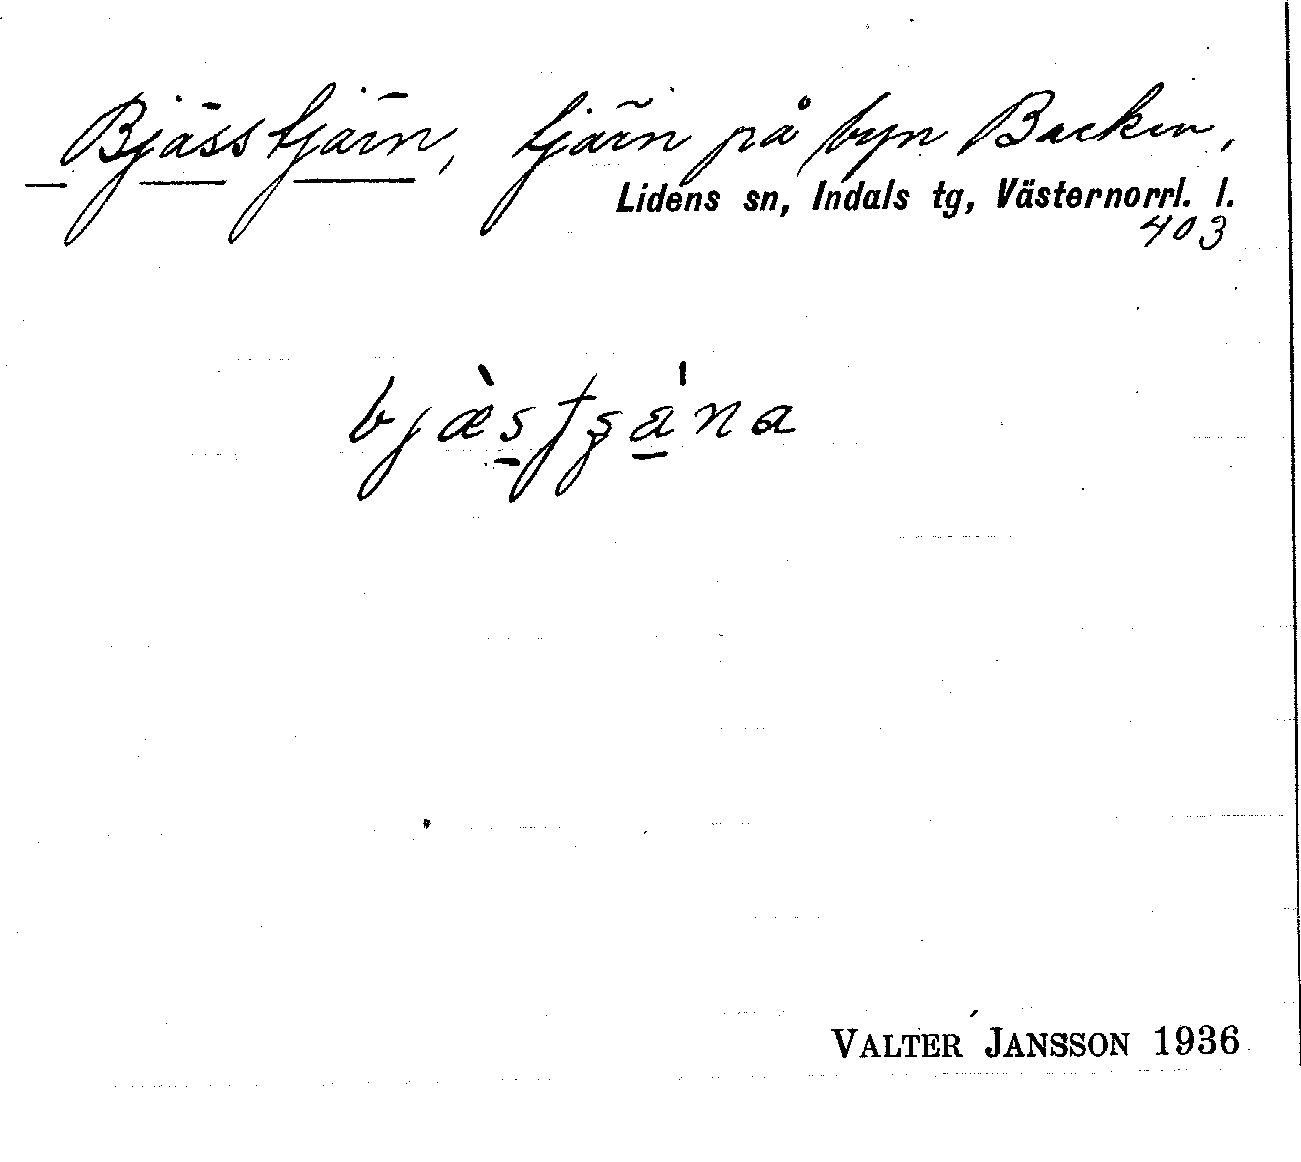 Bjässtjärn, tjärn på byn Backen,
Lidens sn, Indals tg, Västernorrl. l.
403
VALTER JANSSON 1936